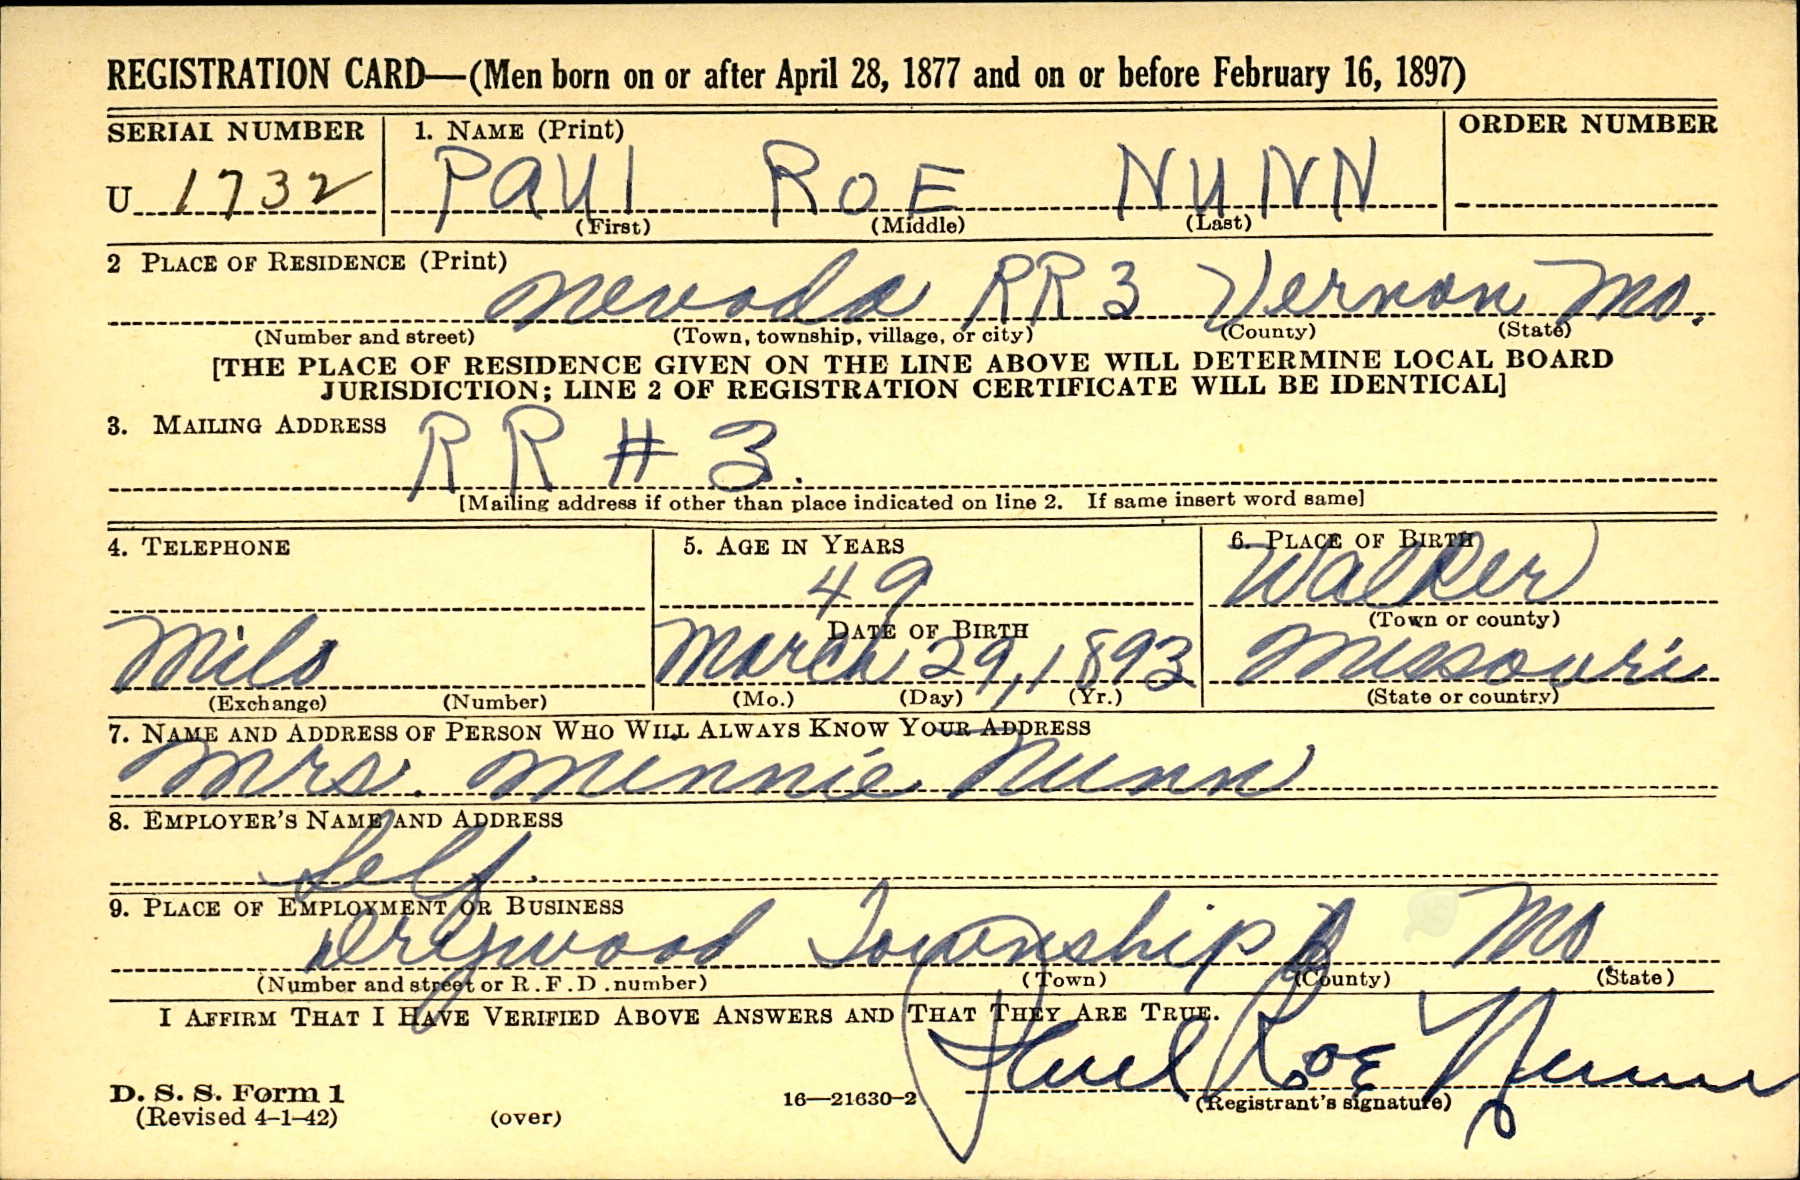 REGISTRATION CARD—(Men born on or after April 28, 1877 and on or before February 16, 1897)
SERIAL NUMBER 1. NAME (Print) ORDER NUMBER
U 1732 PAUl ROE NUNN
(First) (Middle) (Last)
2 PLACE OF RESIDENCE (Print)
Nevada RR 3 Vernon Mo.
(Number and street) (Town, township, village, or city) (County) (State)
[THE PLACE OF RESIDENCE GIVEN ON THE LINE ABOVE WILL DETERMINE LOCAL BOARD
JURISDICTION; LINE 2 OF REGISTRATION CERTIFICATE WILL BE IDENTICAL]
3. MAILING ADDRESS
RR # 3.
[Mailing address if other than place indicated on line 2. If same insert word same]
4. TELEPHONE 5. AGE IN YEARS 6. PLACE OF BIRTH
49 Walker
DATE OF BIRTH (Town or county)
Milo March 29, 1893 Missouri
(Exchange) (Number) (Mo.) (Day) (Yr.) (State or country)
7. NAME AND ADDRESS OF PERSON WHO WILL ALWAYS KNOW YOUR ADDRESS
Mrs. Minnie Nunn
8. EMPLOYER'S NAME AND ADDRESS
Self.
9. PLACE OF EMPLOYMENT OR BUSINESS
Drywood Township Mo.
(Number and street or R. F. D. number) (Town) (County) (State)
I AFFIRM THAT I HAVE VERIFIED ABOVE ANSWERS AND THAT THEY ARE TRUE.
Paul Roe Nunn
D. S. S. Form 1
(Revised 4-1-42) (over) 16—21630-2 (Registrant's signature)